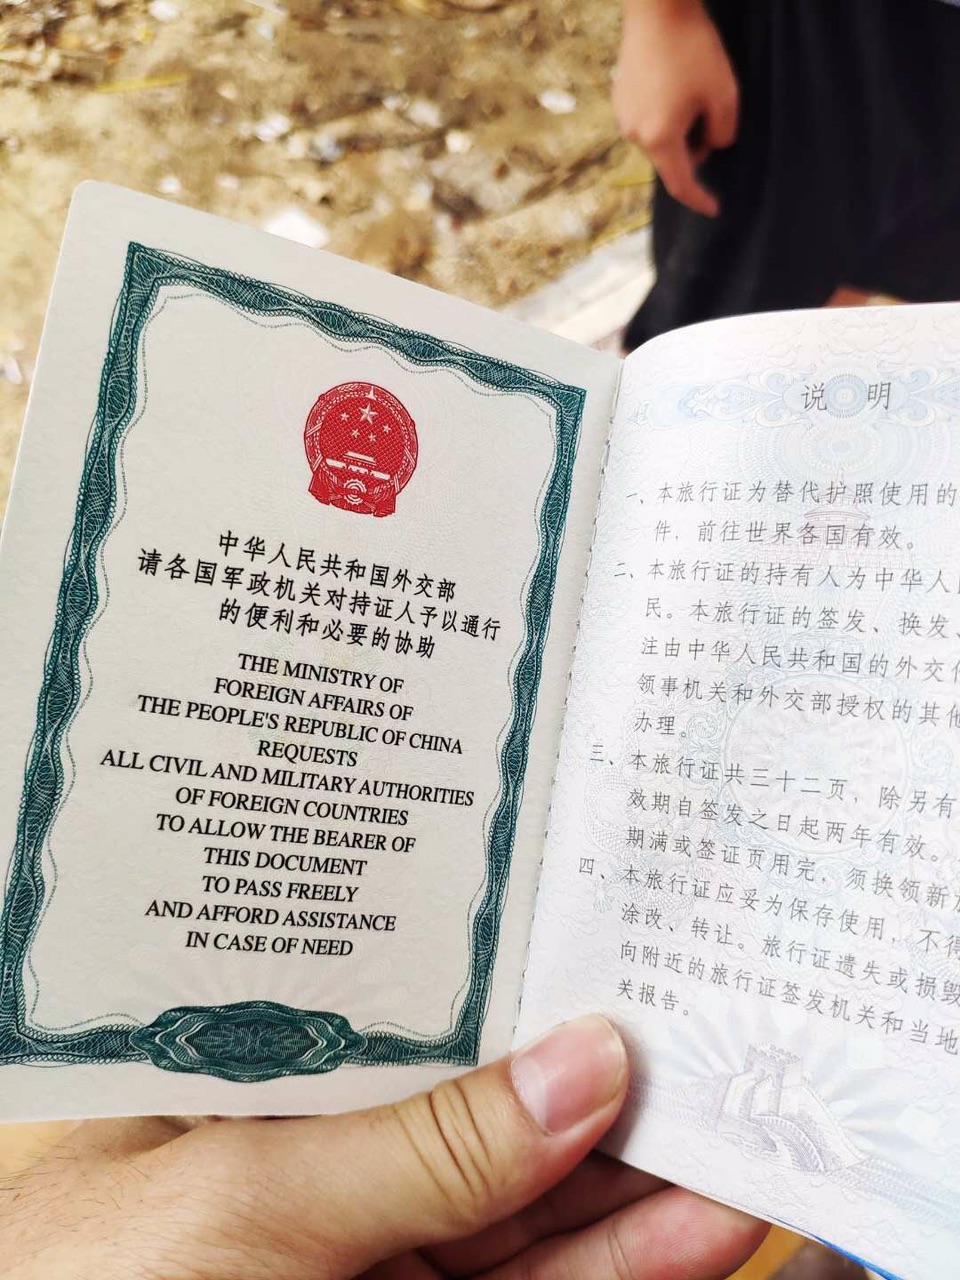 中华人民共和国外交部
请各国军政机关对持证人予以通行
的便利和必要的协助
THE MINISTRY OF
FOREIGN AFFAIRS OF
THE PEOPLE'S REPUBLIC OF CHINA
REQUESTS
ALL CIVIL AND MILITARY AUTHORITIES
OF FOREIGN COUNTRIES
TO ALLOW THE BEARER OF
THIS DOCUMENT
TO PASS FREELY
AND AFFORD ASSISTANCE
IN CASE OF NEED
说明
一、本旅行证为替代护照使用的
件，前往世界各国有效。
二、本旅行证的持有人为中华人民
民。本旅行证的签发、换发、
注由中华人民共和国的外交代
领事机关和外交部授权的其他
办理。
三、本旅行证共三十二页，除另有
效期自签发之日起两年有效。
期满或签证页用完，须换领新旅
四、本旅行证应妥为保存使用，不得
涂改、转让。旅行证遗失或损毁
向附近的旅行证签发机关和当地
关报告。